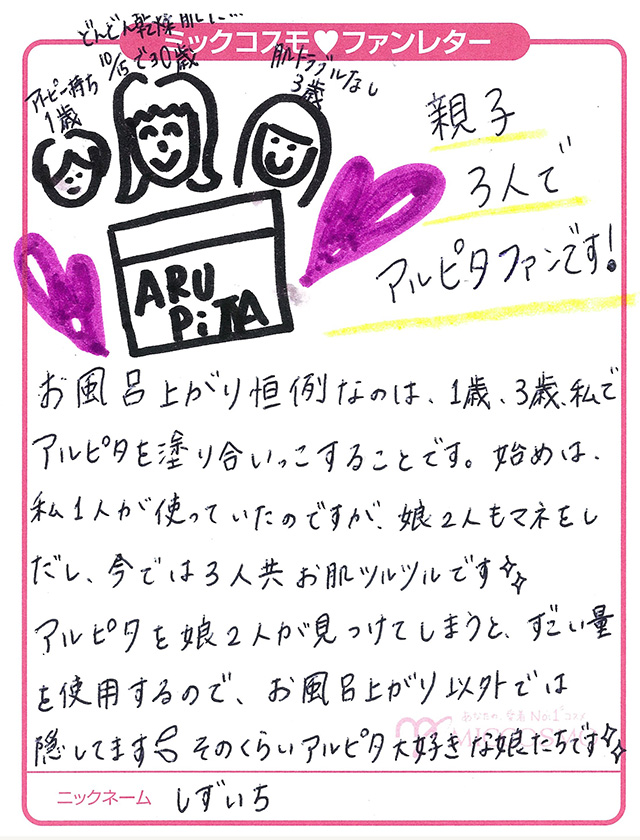 どんどん乾燥肌に…
10/15で30歳
ミックコスモ♥ファンレター
アトピー持ち
1歳
肌トラブルなし
3歳
親子
3人で
アルピタファンです!
ARU
PiTA
お風呂上がり恒例なのは、1歳、3歳、私で
アルピタを塗り合いっこすることです。始めは、
私1人が使っていたのですが、娘2人もマネをし
だし、今では3人共お肌ツルツルです
アルピタを娘2人が見つけてしまうと、すごい量
を使用するので、お風呂上がり以外では
あなたの、愛着No.1コスメ
MICCOSMO
隠してます そのくらいアルピタ大好きな娘たちです
ニックネーム しずいち